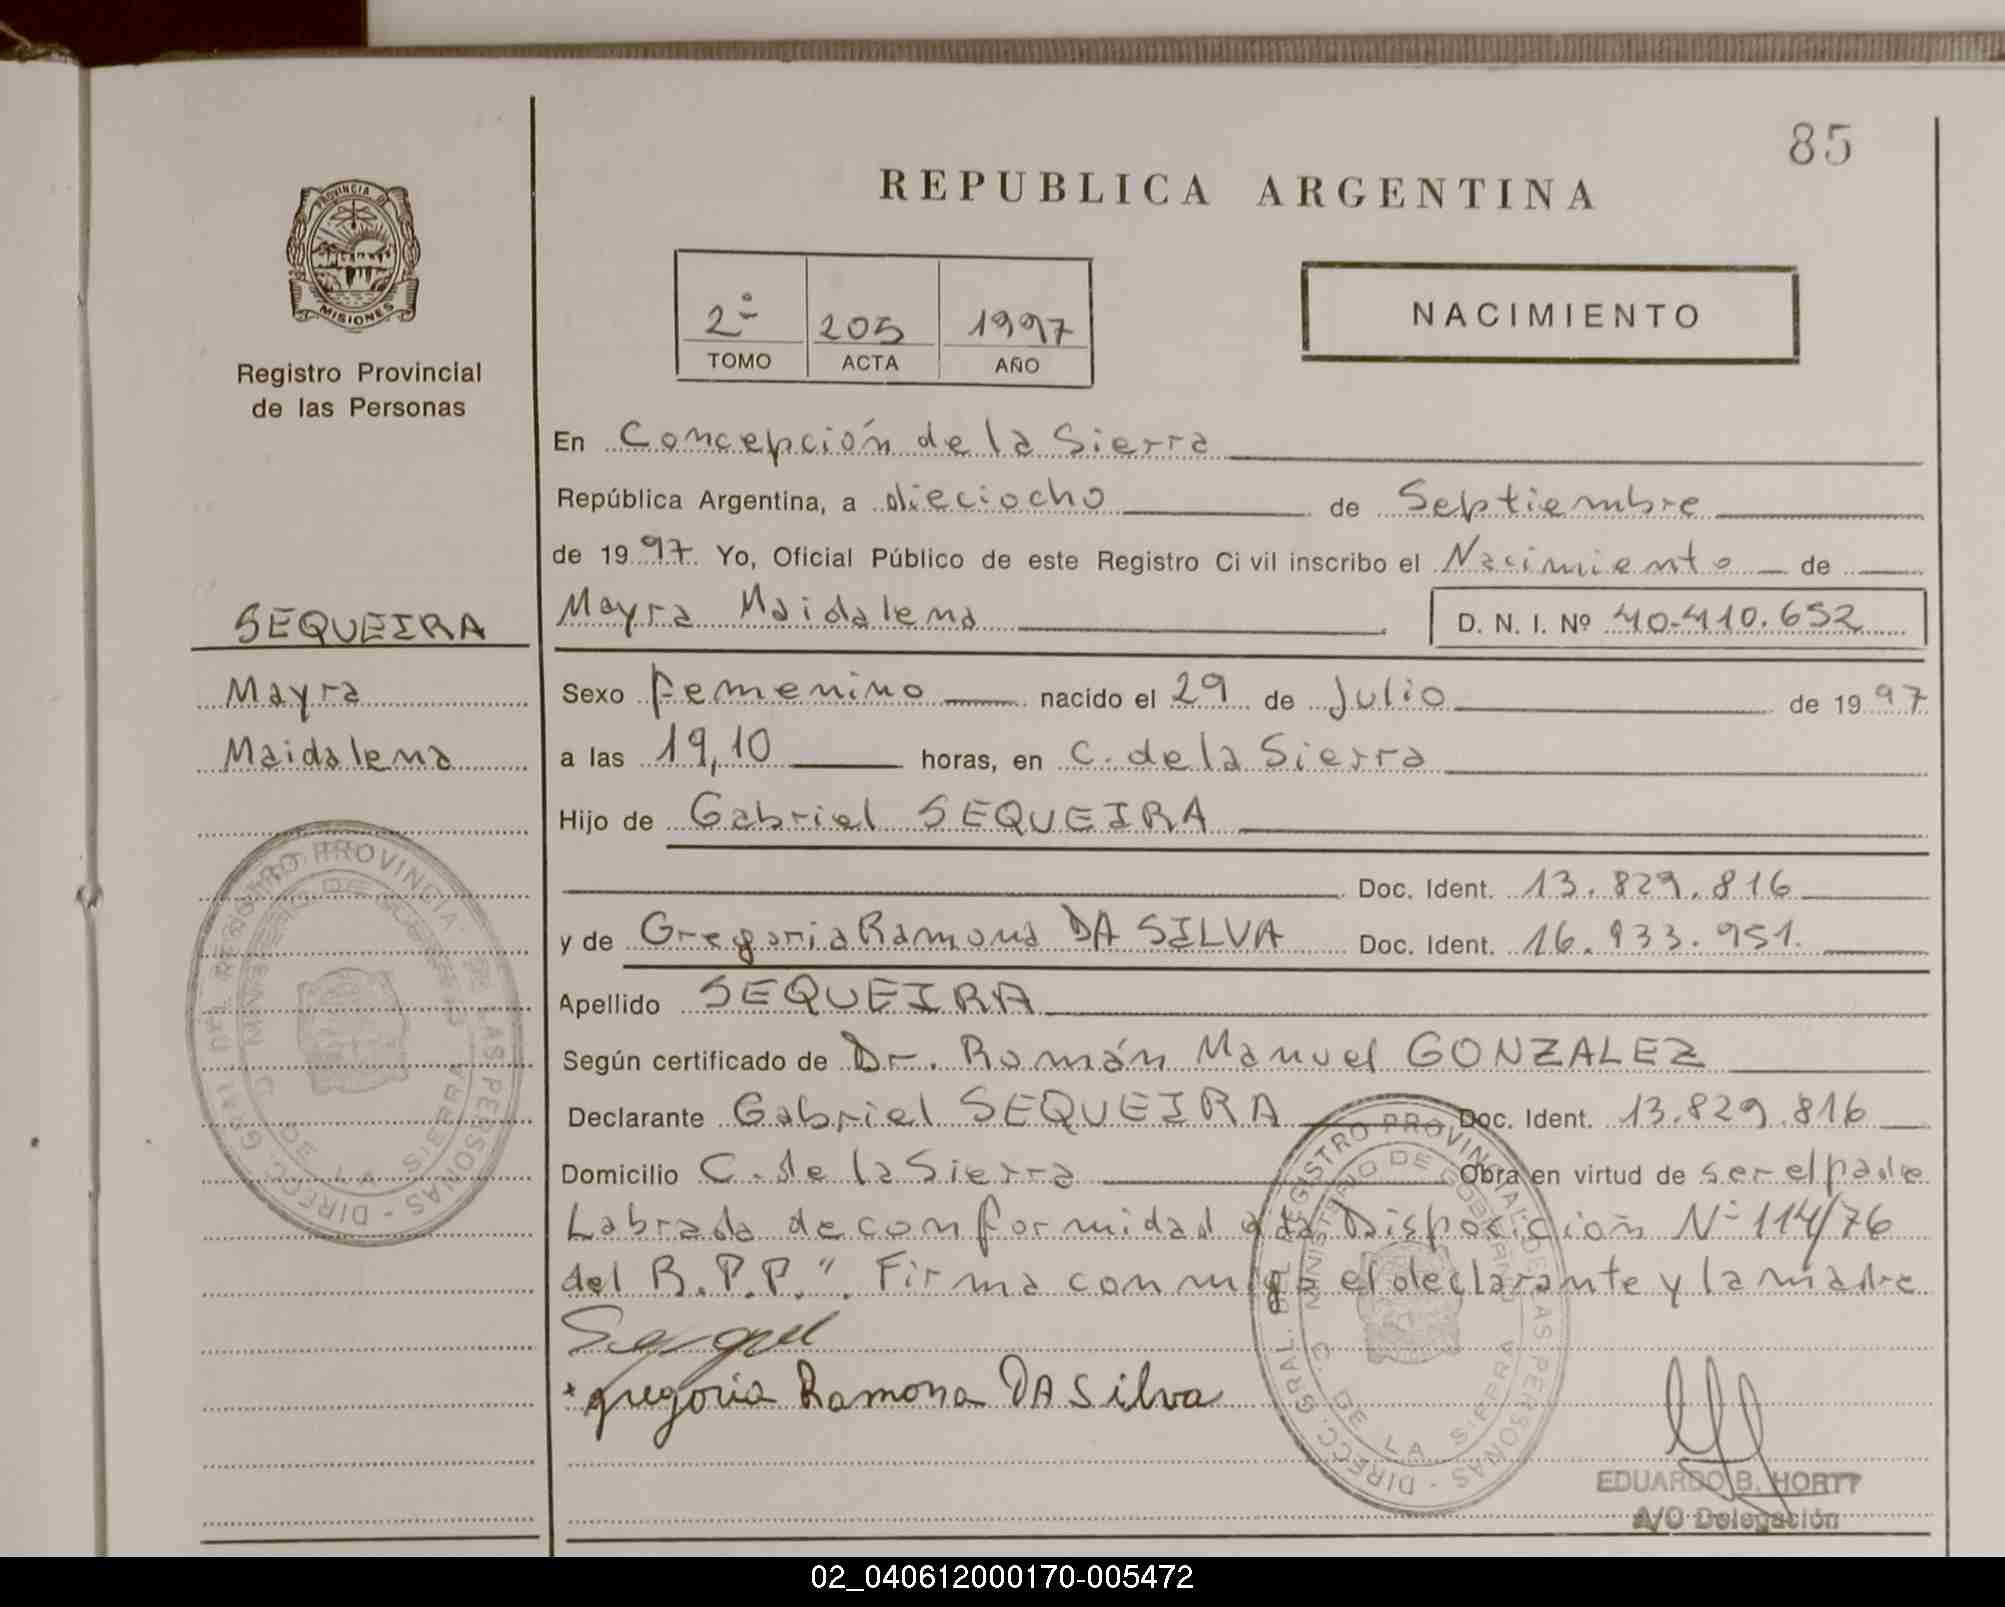 85
REPUBLICA ARGENTINA
PROVINCIA DE
MISIONES
Registro Provincial
de las Personas
2º 205 1997
TOMO ACTA AÑO
NACIMIENTO
En Concepción de la Sierra
República Argentina, a dieciocho de Septiembre
de 1997. Yo, Oficial Público de este Registro Ci vil inscribo el Nacimiento de
SEQUEIRA
Mayra Maidalena D. N. I. Nº 40.410.652
Mayra
Sexo femenino nacido el 29 de Julio de 1997
Maidalena
a las 19,10 horas, en C. de la Sierra
Hijo de Gabriel SEQUEIRA
Doc. Ident. 13.829.816
y de Gregoria Ramona DA SILVA Doc. Ident. 16.933.951.
Apellido SEQUEIRA
Según certificado de Dr. Román Manuel GONZALEZ
Declarante Gabriel SEQUEIRA Doc. Ident. 13.829.816
Domicilio C. de la Sierra Obra en virtud de ser el padre
Labrada de conformidad a la Disposición Nº 114/76
del R.P.P.". Firma conmigo el declarante y la madre
gregoria Ramona DA Silva
DIRECC. GRAL. DEL REGISTRO PROVINCIAL DE LAS PERSONAS
MINISTERIO DE GOBIERNO
C. DE LA SIERRA
DIRECC. GRAL. DEL REGISTRO PROVINCIAL DE LAS PERSONAS
MINISTERIO DE GOBIERNO
C. DE LA SIERRA
EDUARDO B. HORTT
A/C Delegación
02_040612000170-005472